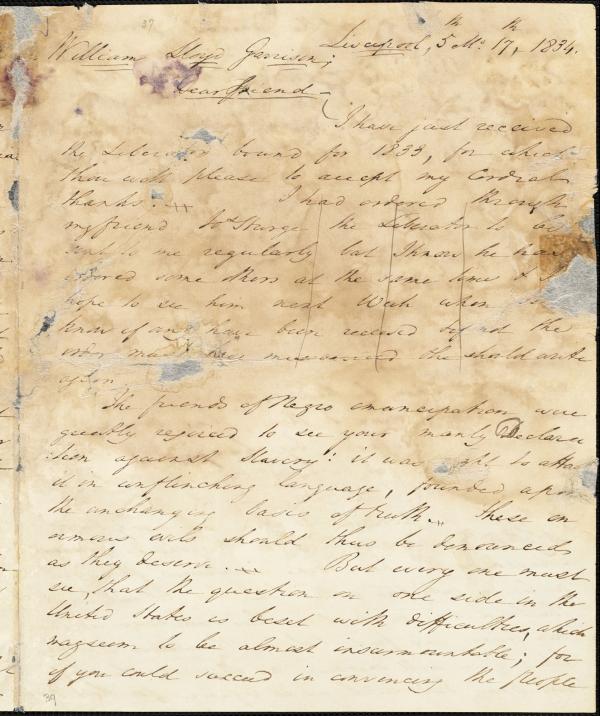 37
Liverpool, 5th Mo. 17th, 1834.
William Lloyd Garrison;
Dear friend
I have just received
the Liberator bound for 1833, for which
thou wilt please to accept my Cordial
thanks. I had ordered through
my friend Jos Sturge the Liberator to be
sent to me regularly but I know he has
ordered some others at the same time &
hope to see him next Week when
know if any have been received if not the
order must have miscarried he should write
again.
The friends of Negro emancipation were
greatly rejoiced to see your manly Declara
tion against Slavery! it was right to attac
it in unflinching language, founded upon
the unchanging basis of truth. These en
ormous evils should thus be denounced
as they deserve. But every one must
see, that the question on one side in the
United States is beset with difficulties, which
may seem to be almost insurmountable; for
if you could succeed in convincing the people
39